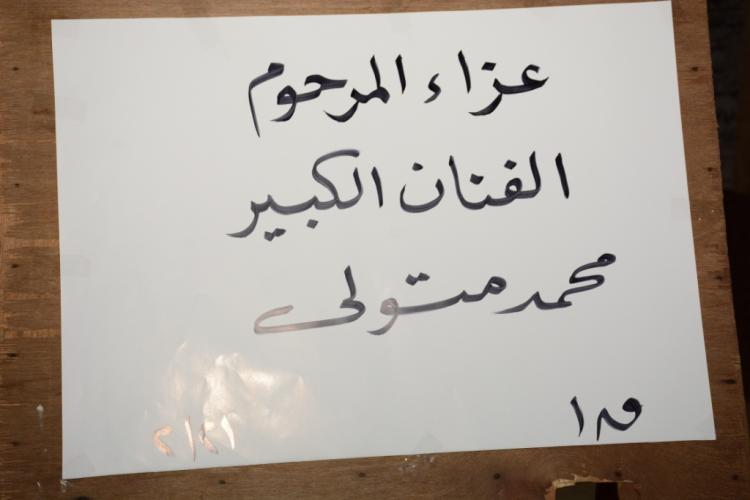 عزاء المرحوم
الفنان الكبير
محمد متولى
ق ١